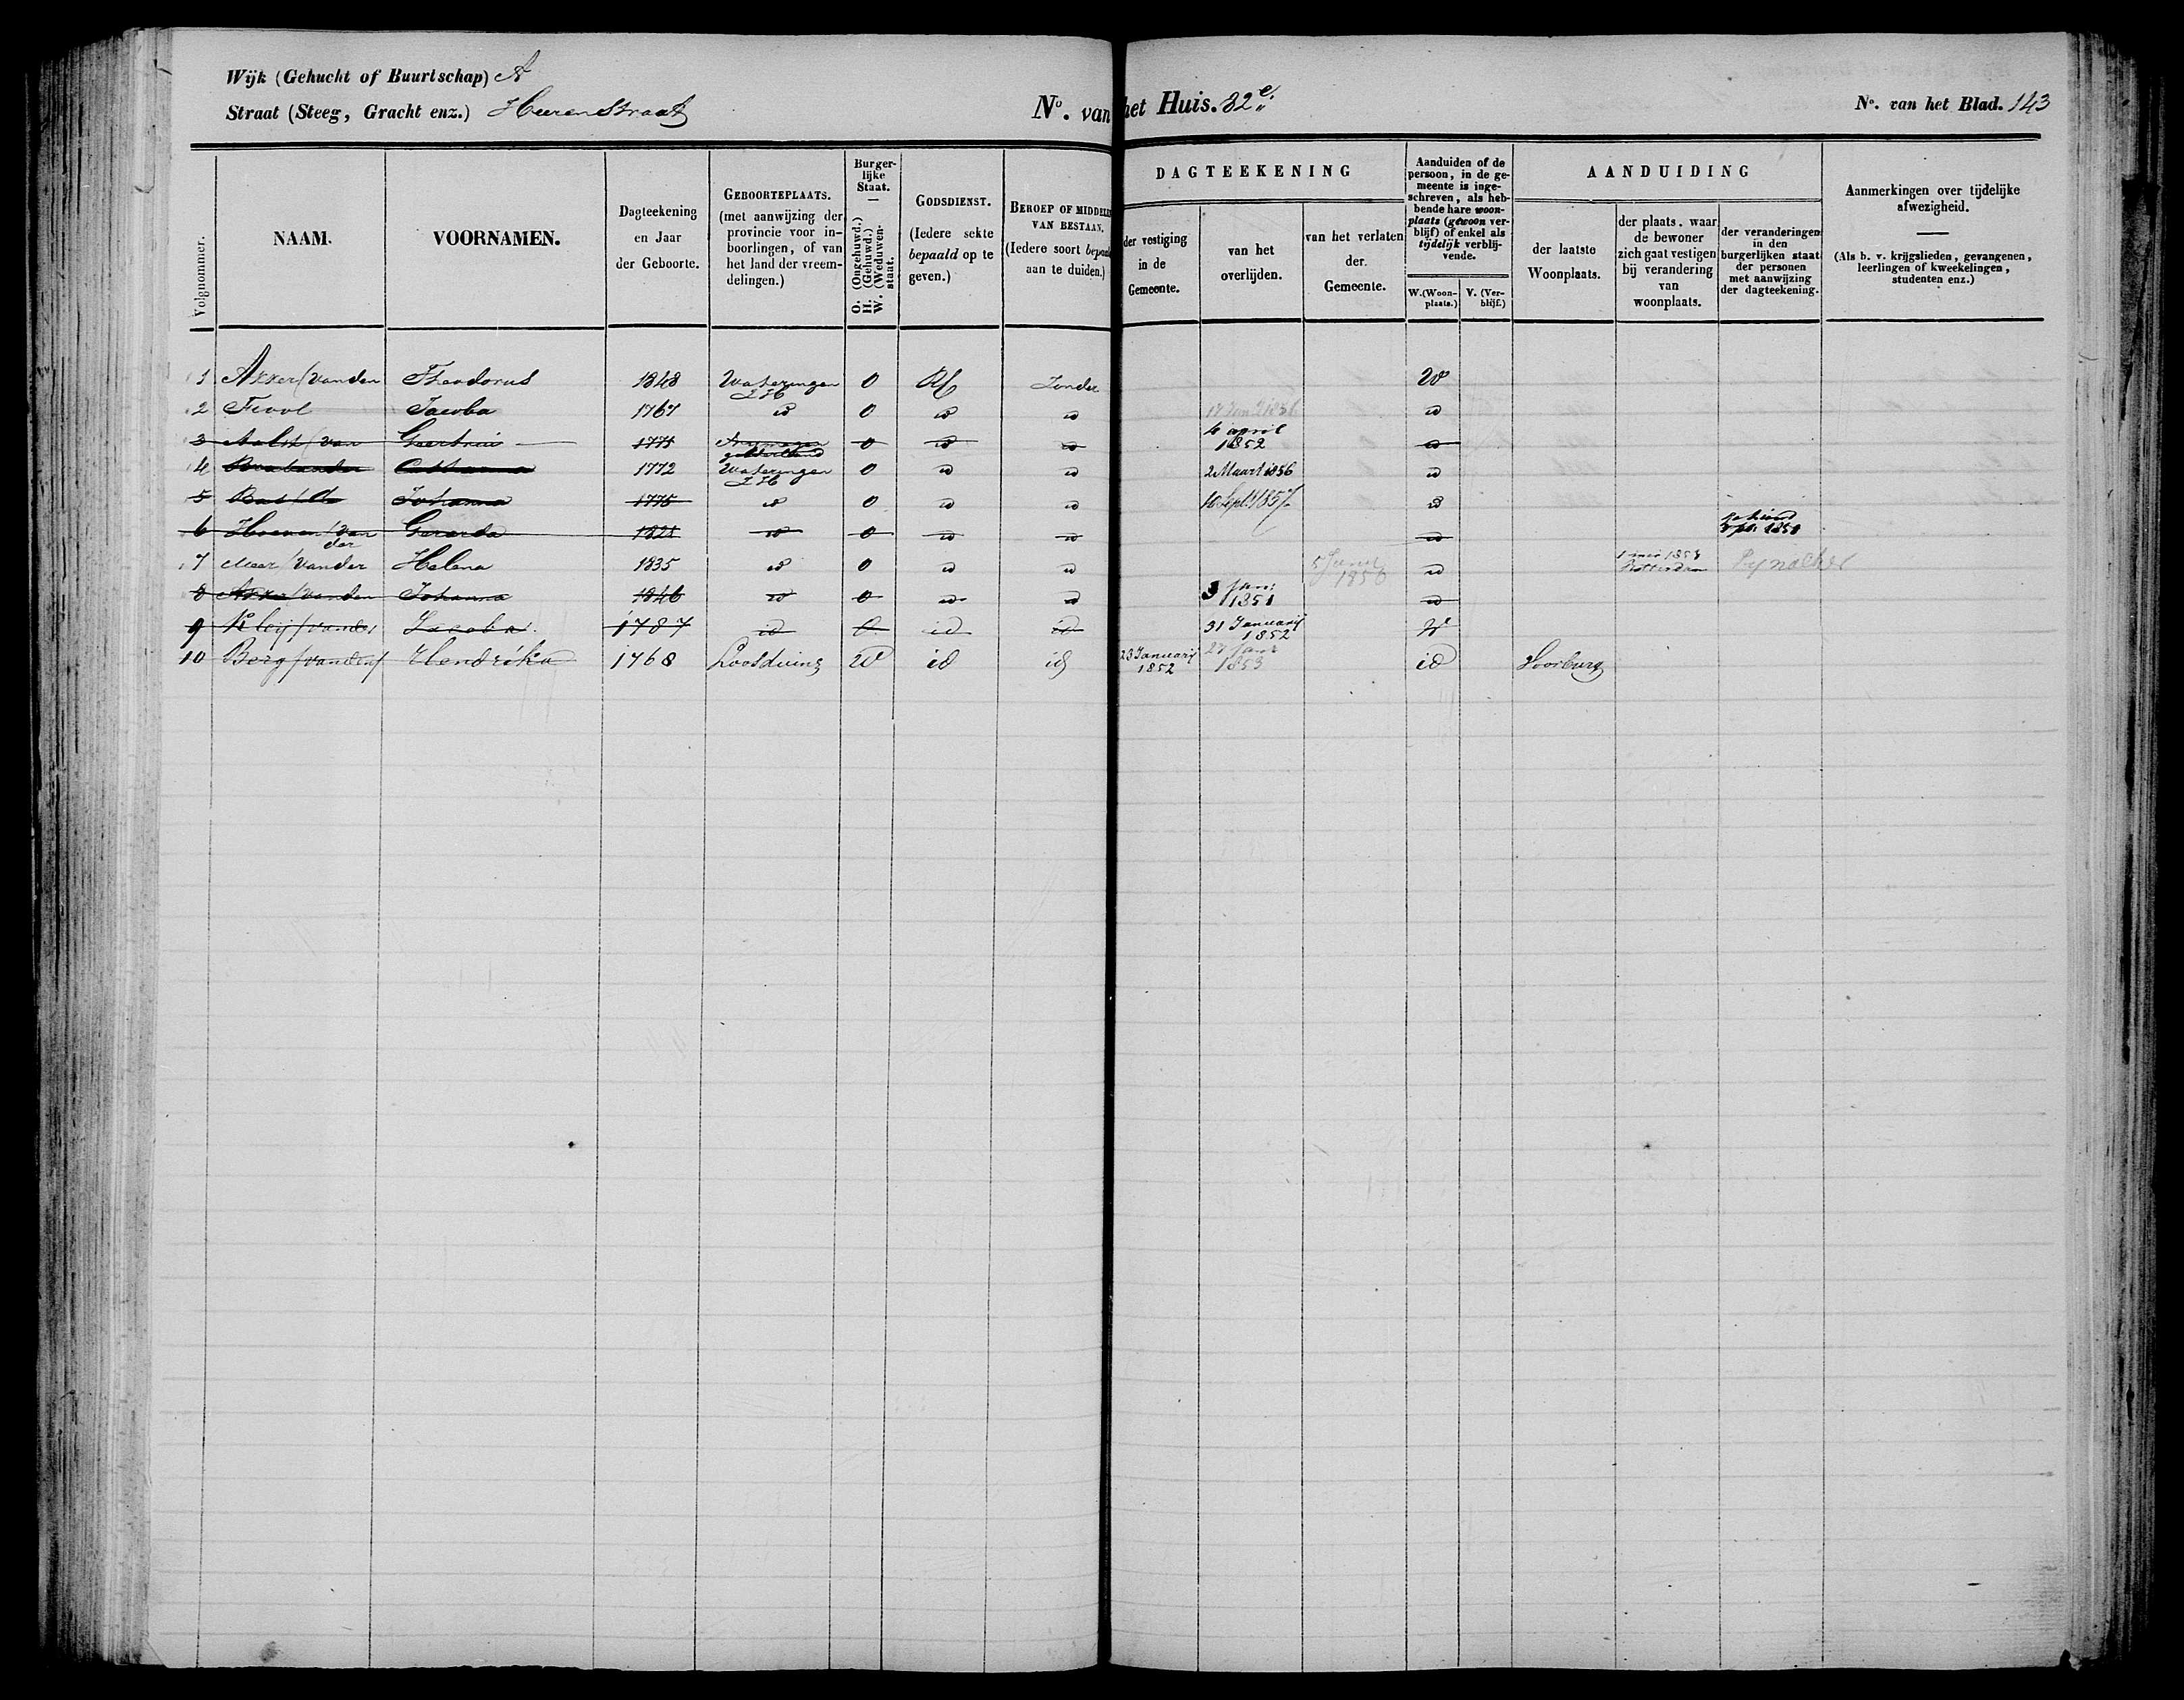 Wijk (Gehucht of Buurtschap) A
Straat (Steeg, Gracht enz.) Heerenstraat
No. van het Huis. 82e
No. van het Blad. 143
Volgnommer.
NAAM.
VOORNAMEN.
Dagteekening
en Jaar
der Geboorte.
GEBOORTEPLAATS.
(met aanwijzing der
provincie voor in-
boorlingen, of van
het land der vreem-
delingen.)
Burger-
lijke
Staat.
O. (Ongehuwd.)
H. (Gehuwd.)
W. (Weduwen-
staat.
GODSDIENST.
(Iedere sekte
bepaald op te
geven.)
BEROEP OF MIDDELEN
VAN BESTAAN.
(Iedere soort bepaald
aan te duiden.)
DAGTEEKENING
der vestiging
in de
Gemeente.
van het
overlijden.
van het verlaten
der.
Gemeente.
Aanduiden of de
persoon, in de ge-
meente is inge-
schreven, als heb-
bende hare woon-
plaats (gewoon ver-
blijf) of enkel als
tijdelijk verblij-
vende.
W. (Woon-
plaats.)
V. (Ver-
blijf.)
AANDUIDING
der laatste
Woonplaats.
der plaats. waar
de bewoner
zich gaat vestigen
bij verandering
van
woonplaats.
der veranderingen
in den
burgerlijken staat
der personen
met aanwijzing
der dagteekening.
Aanmerkingen over tijdelijke
afwezigheid.
(Als b. v. krijgslieden, gevangenen,
leerlingen of kweekelingen,
studenten enz.)
1 Akker / van den Theodorus 1848 Wateringen Z H O RC Zonder W
2 Jacoba 1767 id O id id id
3 Aalst / van Geertrui 1771 gelderland O id id 4 april 1852 id
4 Brabander 1772 Wateringen Z H O id id 2 Maart 1856 id
5 Bas / de Johanna 1775 id O id id 10 Sept. 1857 id
6 Hoeven / van der Gerarda 1821 id O id id id
7 Meer / van der Helena 1835 id O id id 5 Junij 1856 id Rotterdam Pynacker
8 Akker / van den Johanna 1846 id O id id 3 Jan: 1851 id
9 Kleij / van der Jacoba 1787 id O id id 31 Januarij 1852 W
10 Berg / van den / Hendrika 1768 Loosduinen W id id 23 Januarij 1852 27 Jan: 1853 id Voorburg